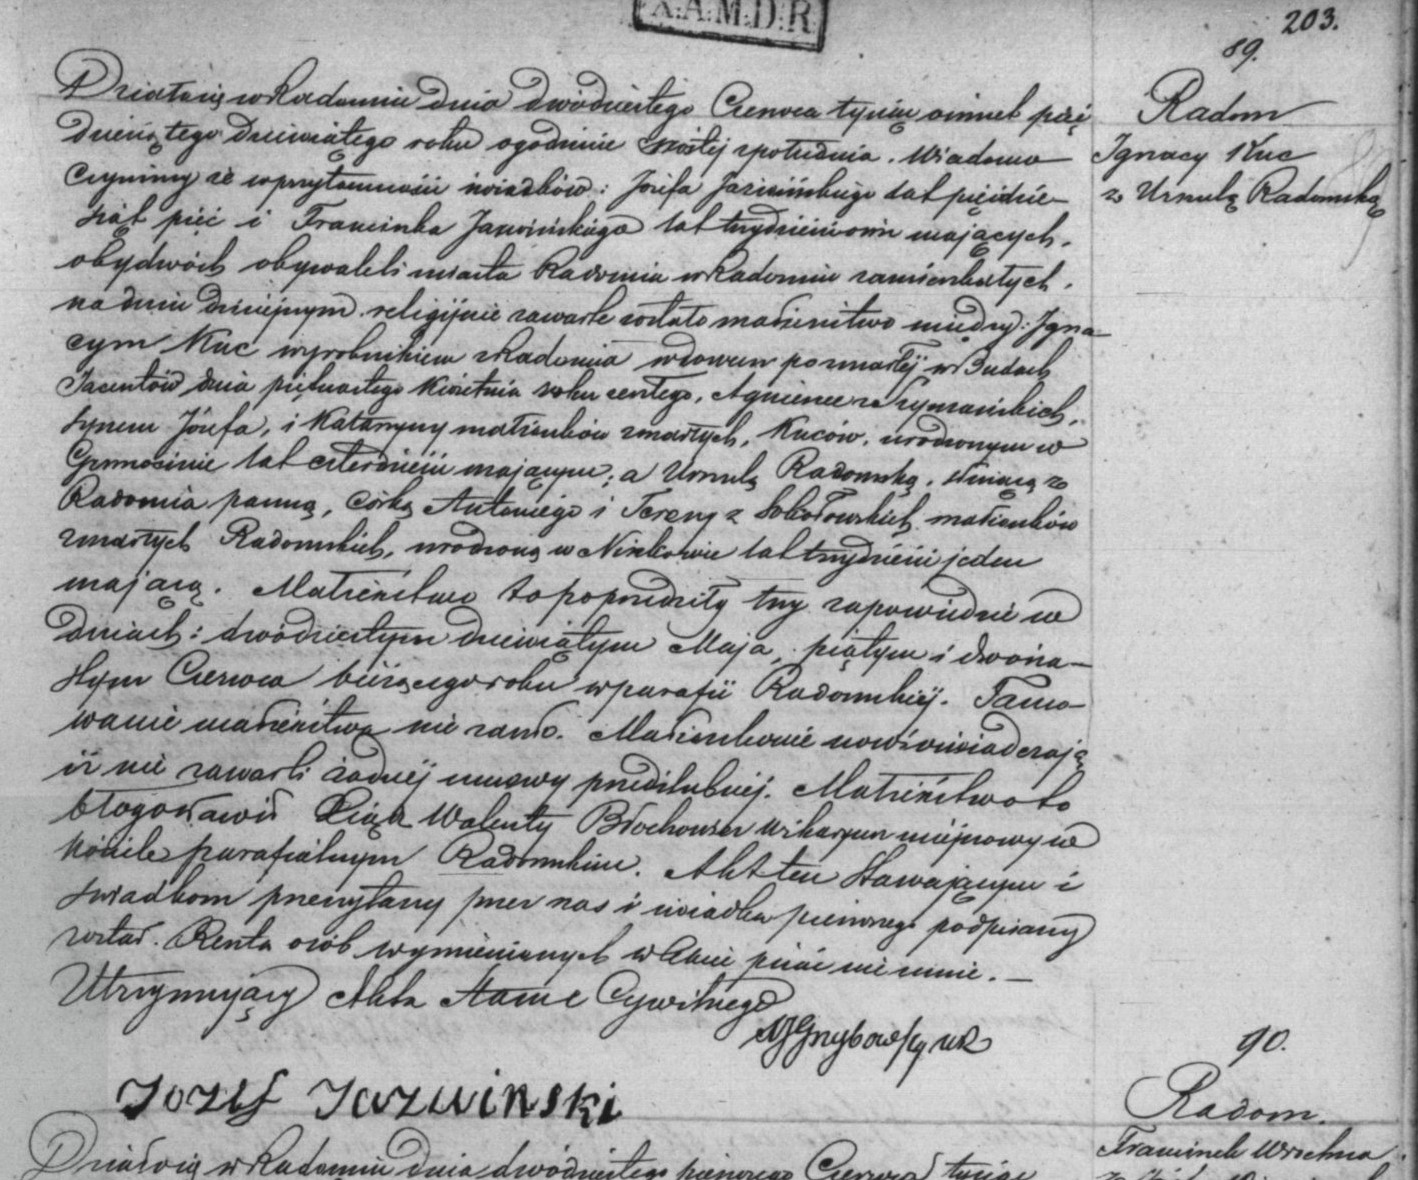 X.A.M.D.R
203.
89.
Radom
Ignacy Kuc
z Urszulą Radomską
Działo się w Radomiu dnia dwódziestego Czerwca tysiąc ośmset pięć
dziesiątego dziewiątego roku o godzinie szóstej z południa. Wiadomo
czynimy że w przytomności świadków: Józefa Jaźwińskiego lat pięćdzie-
siąt pięć i Franciszka Jaźwińskiego lat trzydzieści ośm mających,
obydwóch obywateli miasta Radomia w Radomiu zamieszkałych,
na dniu dzisiejszym religijnie zawarte zostało małżeństwo między: Igna-
cym Kuc wyrobnikiem z Radomia wdowcem po zmarłej w Budach
Jacentów dnia piętnastego Kwietnia roku zeszłego, Agnieszce z Szymańskich,
synem Józefa, i Katarzyny małżonków zmarłych, Kuców, urodzonym w
lat czterdzieści mającym; a Urszulą Radomską, służącą z
Radomia panną, córką Antoniego i Teresy z Sobotowskich małżonków
zmarłych Radomskich, urodzoną w Ninkowie lat trzydzieści jeden
mającą. Małżeństwo to poprzedziły trzy zapowiedzie w
dniach: dwódziestym dziewiątym Maja, piątym i dwóna-
stym Czerwca bieżącego roku w parafii Radomskiej. Tamo-
wanie małżeństwa nie zaszło. Małżonkowie nowi oświadczają
iż nie zawarli żadnej umowy przedślubnej. Małżeństwo to
błogosławił Xiądz Walenty Błochowicz wikaryusz miejscowy w
kościele parafialnym Radomskim. Akt ten stawającym i
świadkom przeczytany przez nas i świadka pierwszego podpisany
został. Reszta osób wymienionych w akcie pisać nie umie. —
Utrzymujący Akta Stanu Cywilnego
Grzybowski
Jozef Jazwinski
90.
Radom.
Franciszek Wrochna
Działo się w Radomiu dnia dwódziestego pierwszego Czerwca tysiąc